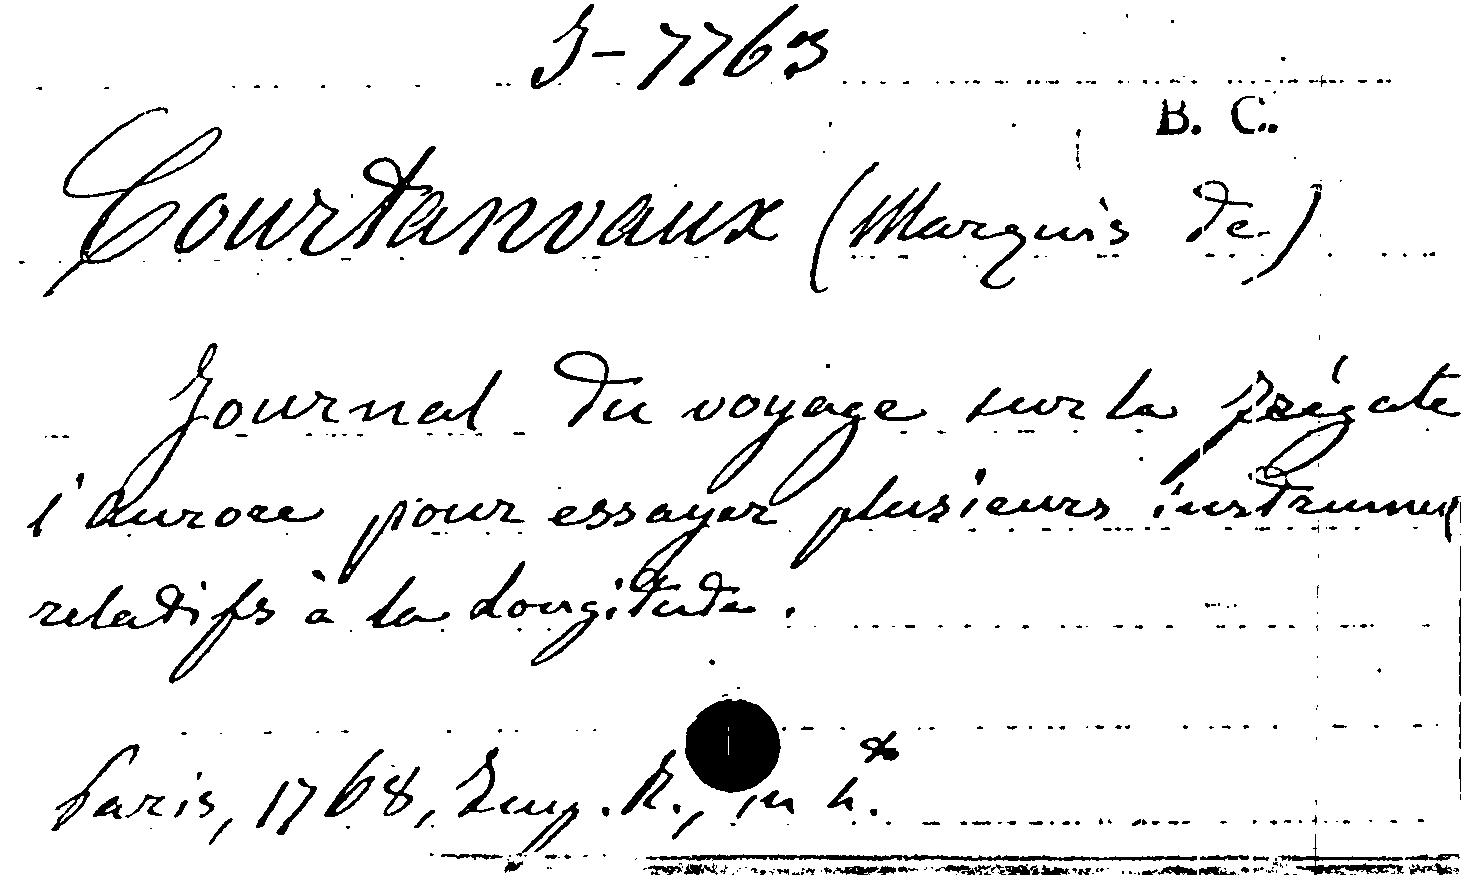 J-7763
B. C.
Courtanvaux (Marquis de)
Journal du voyage sur la frégate
l'aurore pour essayer plusieurs instrumen
relatifs à la Longitude.
Paris, 1768, Imp. R., in 4.